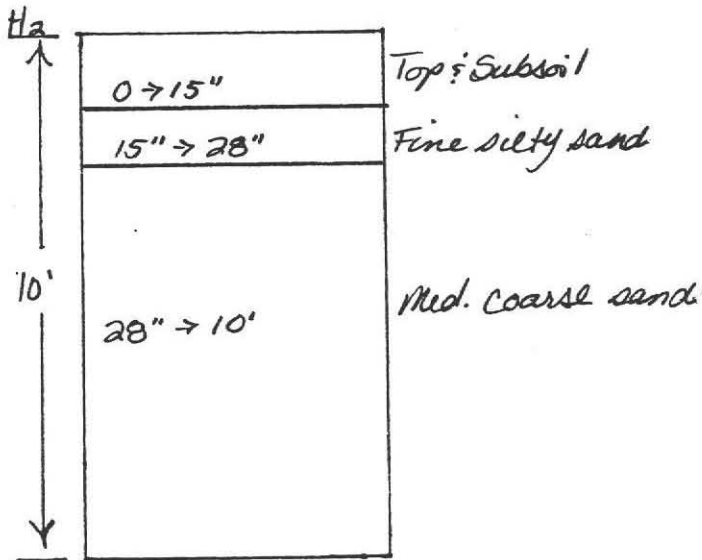 H2
0→15" Top & Subsoil
15"→28" Fine silty sand
10'
28"→10' Med. coarse sand